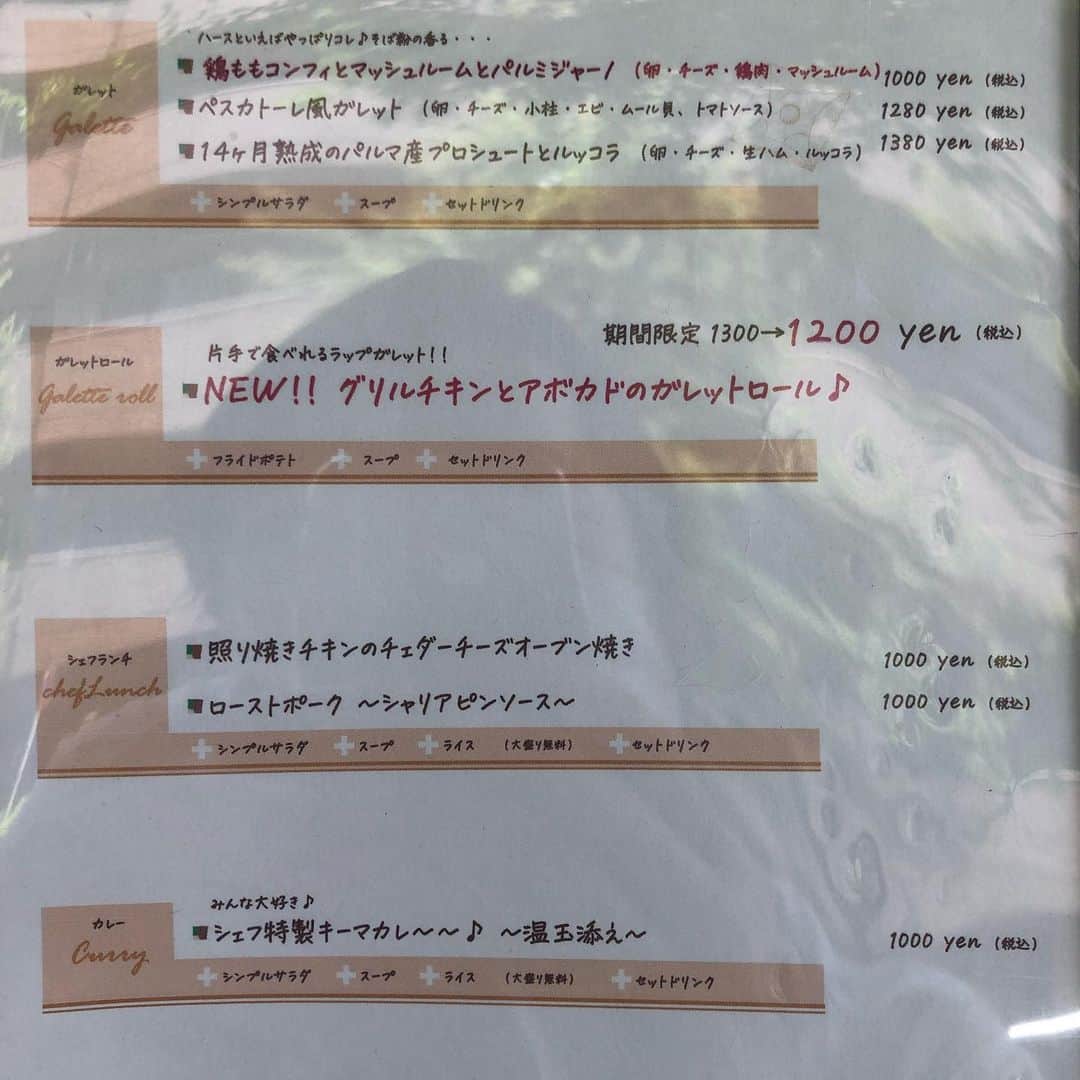 ハースといえばやっぱりコレ♪そば粉の香る・・・
ガレット
Galette
鶏ももコンフィとマッシュルームとパルミジャーノ （卵・チーズ・鶏肉・マッシュルーム） 1000 yen （税込）
ペスカトーレ風ガレット （卵・チーズ・小柱・エビ・ムール貝、トマトソース） 1280 yen （税込）
14ヶ月熟成のパルマ産プロシュートとルッコラ （卵・チーズ・生ハム・ルッコラ） 1380 yen （税込）
＋シンプルサラダ ＋スープ ＋セットドリンク
期間限定 1300→1200 yen （税込）
ガレットロール
Galette roll
片手で食べれるラップガレット！！
NEW！！ グリルチキンとアボカドのガレットロール♪
＋フライドポテト ＋スープ ＋セットドリンク
シェフランチ
chefLunch
照り焼きチキンのチェダーチーズオーブン焼き 1000 yen （税込）
ローストポーク ～シャリアピンソース～ 1000 yen （税込）
＋シンプルサラダ ＋スープ ＋ライス （大盛り無料） ＋セットドリンク
カレー
Curry
みんな大好き♪
シェフ特製キーマカレ～～♪ ～温玉添え～ 1000 yen （税込）
＋シンプルサラダ ＋スープ ＋ライス （大盛り無料） ＋セットドリンク